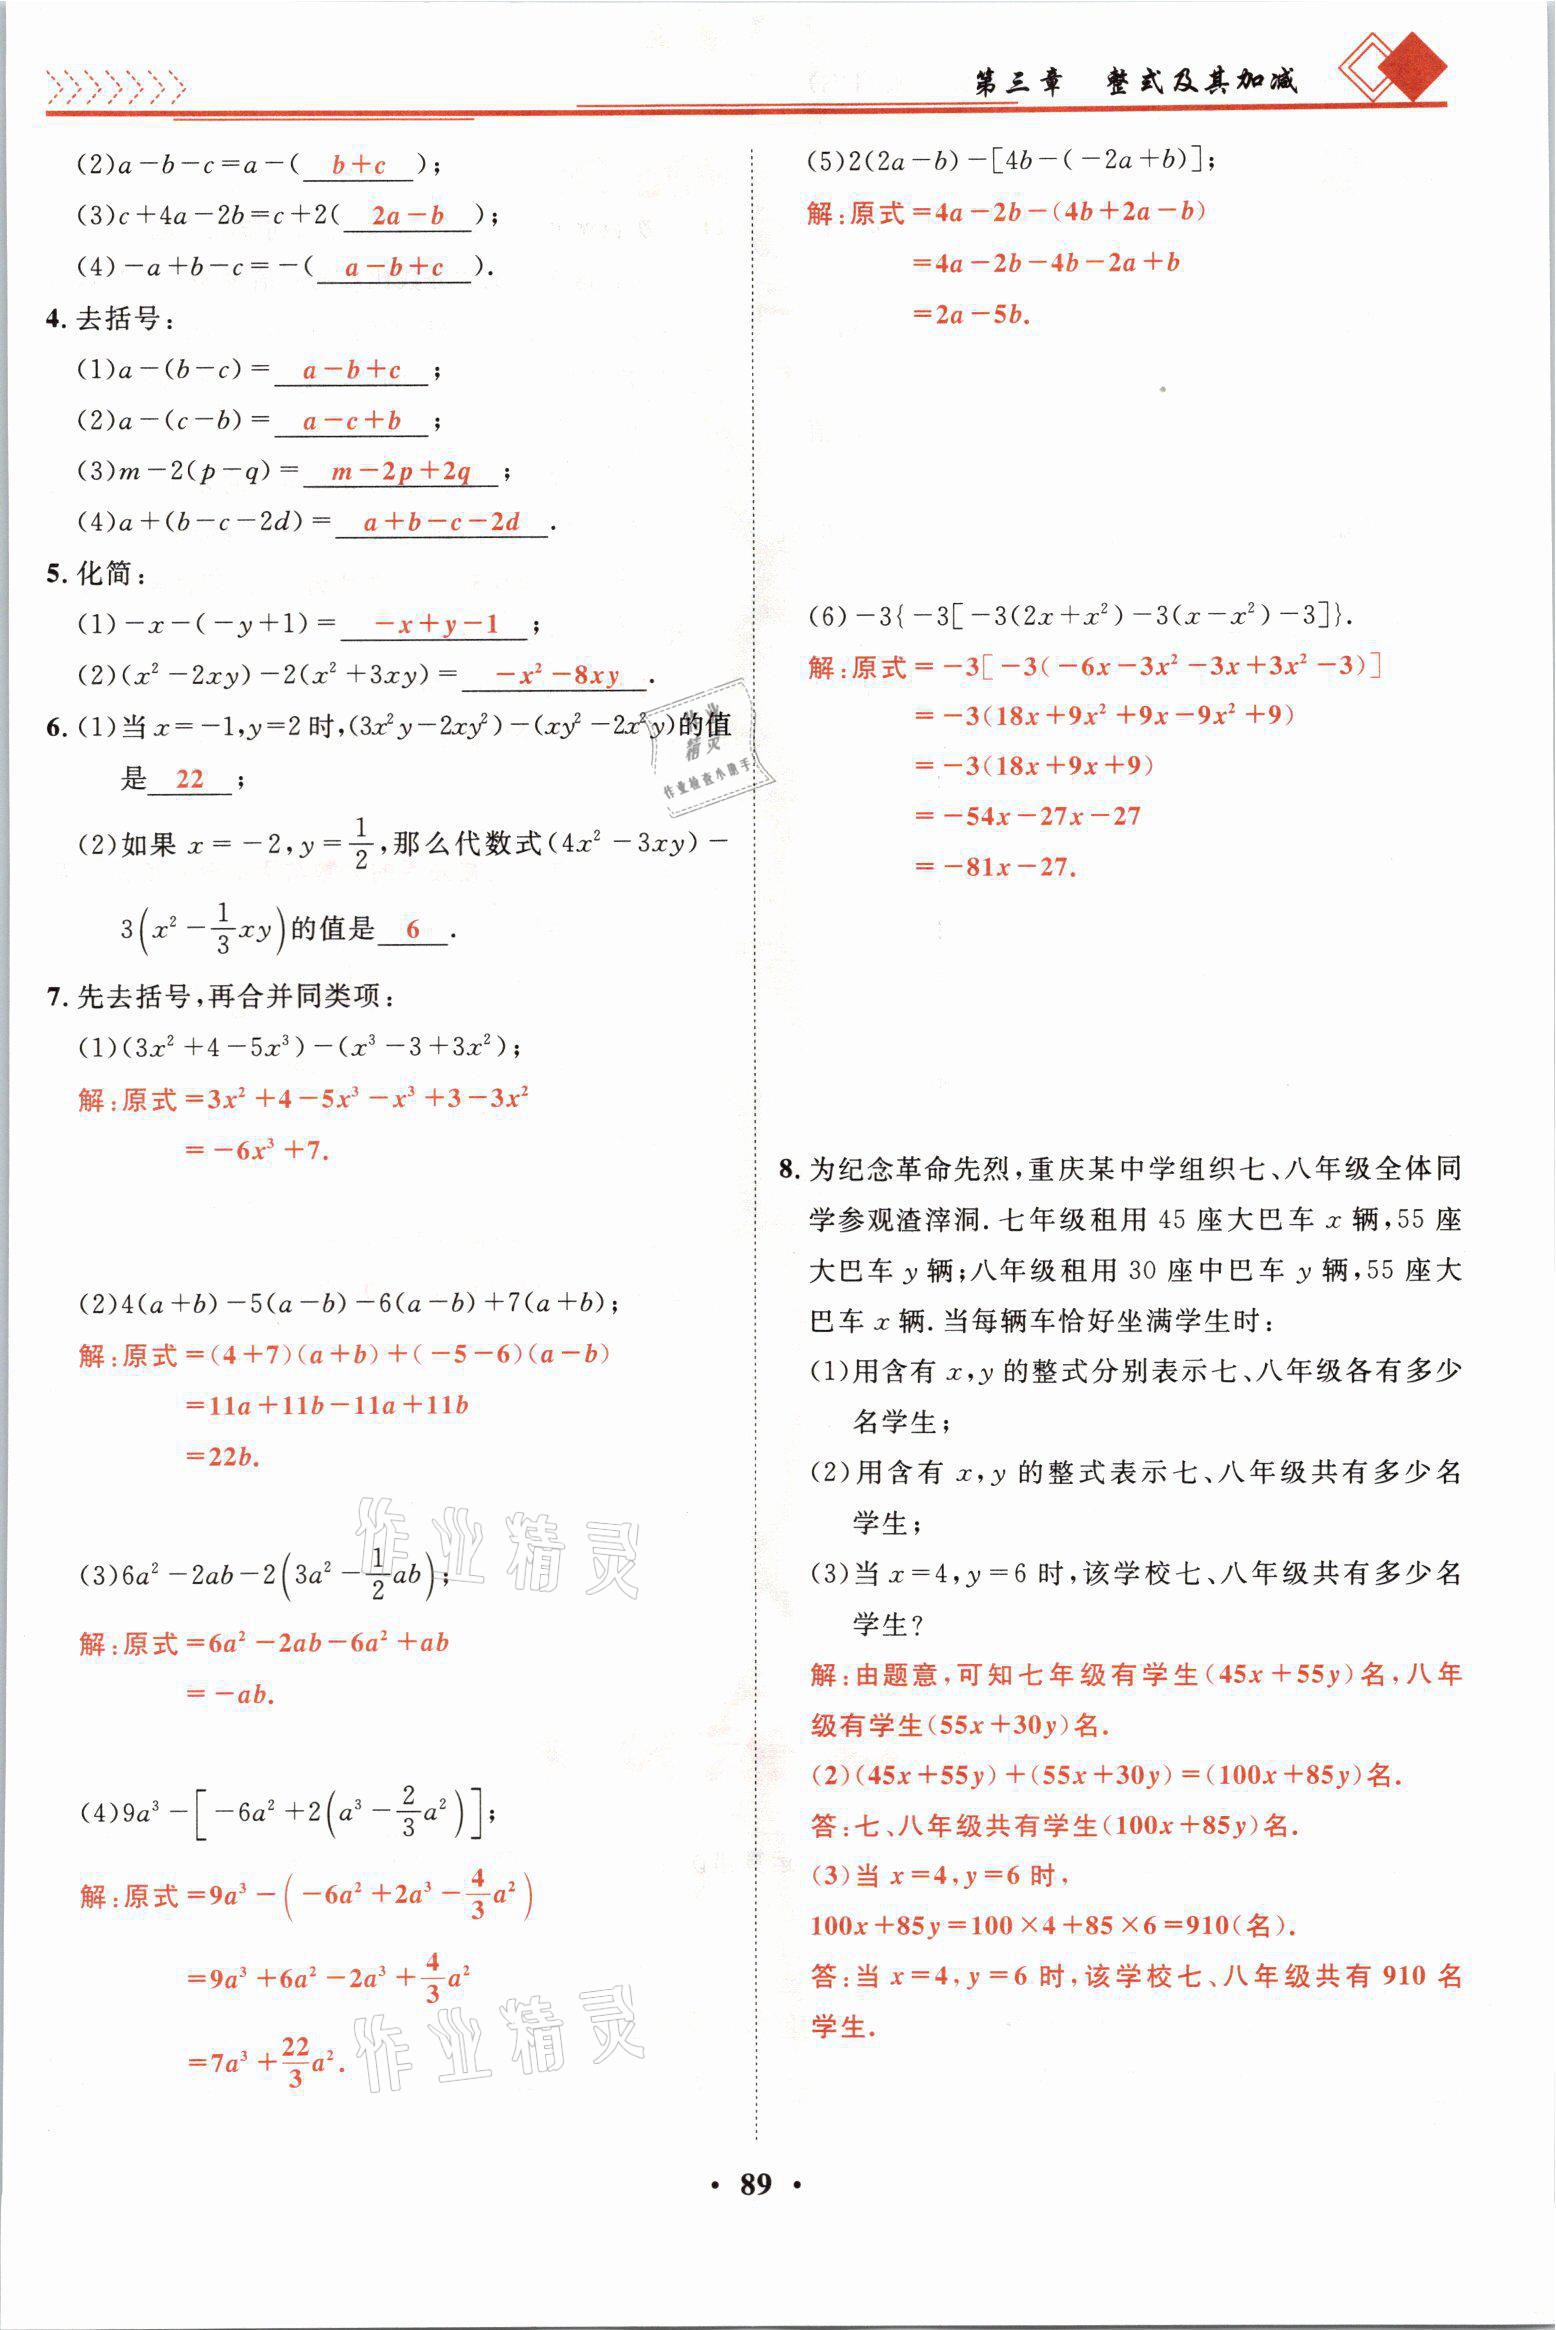 第三章 整式及其加减
(2)a－b－c＝a－( b＋c );
(3)c＋4a－2b＝c＋2( 2a－b );
(4)－a＋b－c＝－( a－b＋c ).
4. 去括号:
(1)a－(b－c)＝ a－b＋c ;
(2)a－(c－b)＝ a－c＋b ;
(3)m－2(p－q)＝ m－2p＋2q ;
(4)a＋(b－c－2d)＝ a＋b－c－2d .
5. 化简:
(1)－x－(－y＋1)＝ －x＋y－1 ;
(2)(x²－2xy)－2(x²＋3xy)＝ －x²－8xy .
6. (1)当 x＝－1,y＝2 时,(3x²y－2xy²)－(xy²－2x²y)的值
是 22 ;
(2)如果 x＝－2,y＝1/2,那么代数式(4x²－3xy)－
3(x²－1/3xy)的值是 6 .
7. 先去括号,再合并同类项:
(1)(3x²＋4－5x³)－(x³－3＋3x²);
解:原式＝3x²＋4－5x³－x³＋3－3x²
＝－6x³＋7.
(2)4(a＋b)－5(a－b)－6(a－b)＋7(a＋b);
解:原式＝(4＋7)(a＋b)＋(－5－6)(a－b)
＝11a＋11b－11a＋11b
＝22b.
(3)6a²－2ab－2(3a²－1/2ab);
解:原式＝6a²－2ab－6a²＋ab
＝－ab.
(4)9a³－[－6a²＋2(a³－2/3a²)];
解:原式＝9a³－(－6a²＋2a³－4/3a²)
＝9a³＋6a²－2a³＋4/3a²
＝7a³＋22/3a².
(5)2(2a－b)－[4b－(－2a＋b)];
解:原式＝4a－2b－(4b＋2a－b)
＝4a－2b－4b－2a＋b
＝2a－5b.
(6)－3{－3[－3(2x＋x²)－3(x－x²)－3]}.
解:原式＝－3[－3(－6x－3x²－3x＋3x²－3)]
＝－3(18x＋9x²＋9x－9x²＋9)
＝－3(18x＋9x＋9)
＝－54x－27x－27
＝－81x－27.
8. 为纪念革命先烈,重庆某中学组织七、八年级全体同
学参观渣滓洞. 七年级租用 45 座大巴车 x 辆,55 座
大巴车 y 辆;八年级租用 30 座中巴车 y 辆,55 座大
巴车 x 辆. 当每辆车恰好坐满学生时:
(1)用含有 x,y 的整式分别表示七、八年级各有多少
名学生;
(2)用含有 x,y 的整式表示七、八年级共有多少名
学生;
(3)当 x＝4,y＝6 时,该学校七、八年级共有多少名
学生?
解:由题意,可知七年级有学生(45x＋55y)名,八年
级有学生(55x＋30y)名.
(2)(45x＋55y)＋(55x＋30y)＝(100x＋85y)名.
答:七、八年级共有学生(100x＋85y)名.
(3)当 x＝4,y＝6 时,
100x＋85y＝100×4＋85×6＝910(名).
答:当 x＝4,y＝6 时,该学校七、八年级共有 910 名
学生.
作业精灵
作业检查小助手
作业精灵
作业精灵
· 89 ·